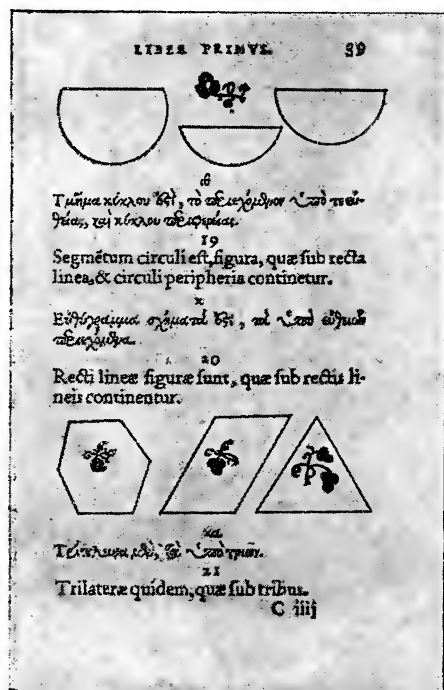 LIBER PRIMVS. 39
ιθ
Τμῆμα κύκλου ὅτὶ, τὸ περιεχόμενον ὑπὸ τε εὐ-
θείας, καὶ κύκλου περιφερείας.
19
Segmētum circuli est, figura, quæ sub recta
linea, & circuli peripheria continetur.
κ
Εὐθύγραμμα σχήματά ἐστι, τὰ ὑπὸ εὐθειῶν
περιεχόμενα.
20
Recti lineæ figuræ sunt, quæ sub rectis li-
neis continentur.
κα
Τρίπλευρα μὲν, τὰ ὑπὸ τριῶν.
21
Trilateræ quidem, quæ sub tribus.
C iiij